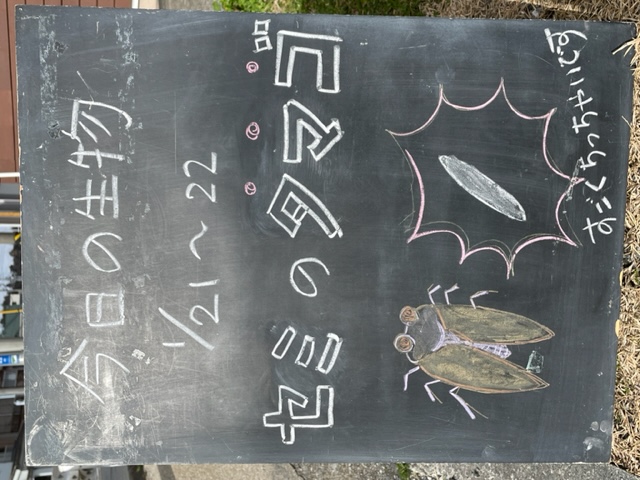 今日の生物
1/21～22
セミのタマゴ
すごくちっちゃいです